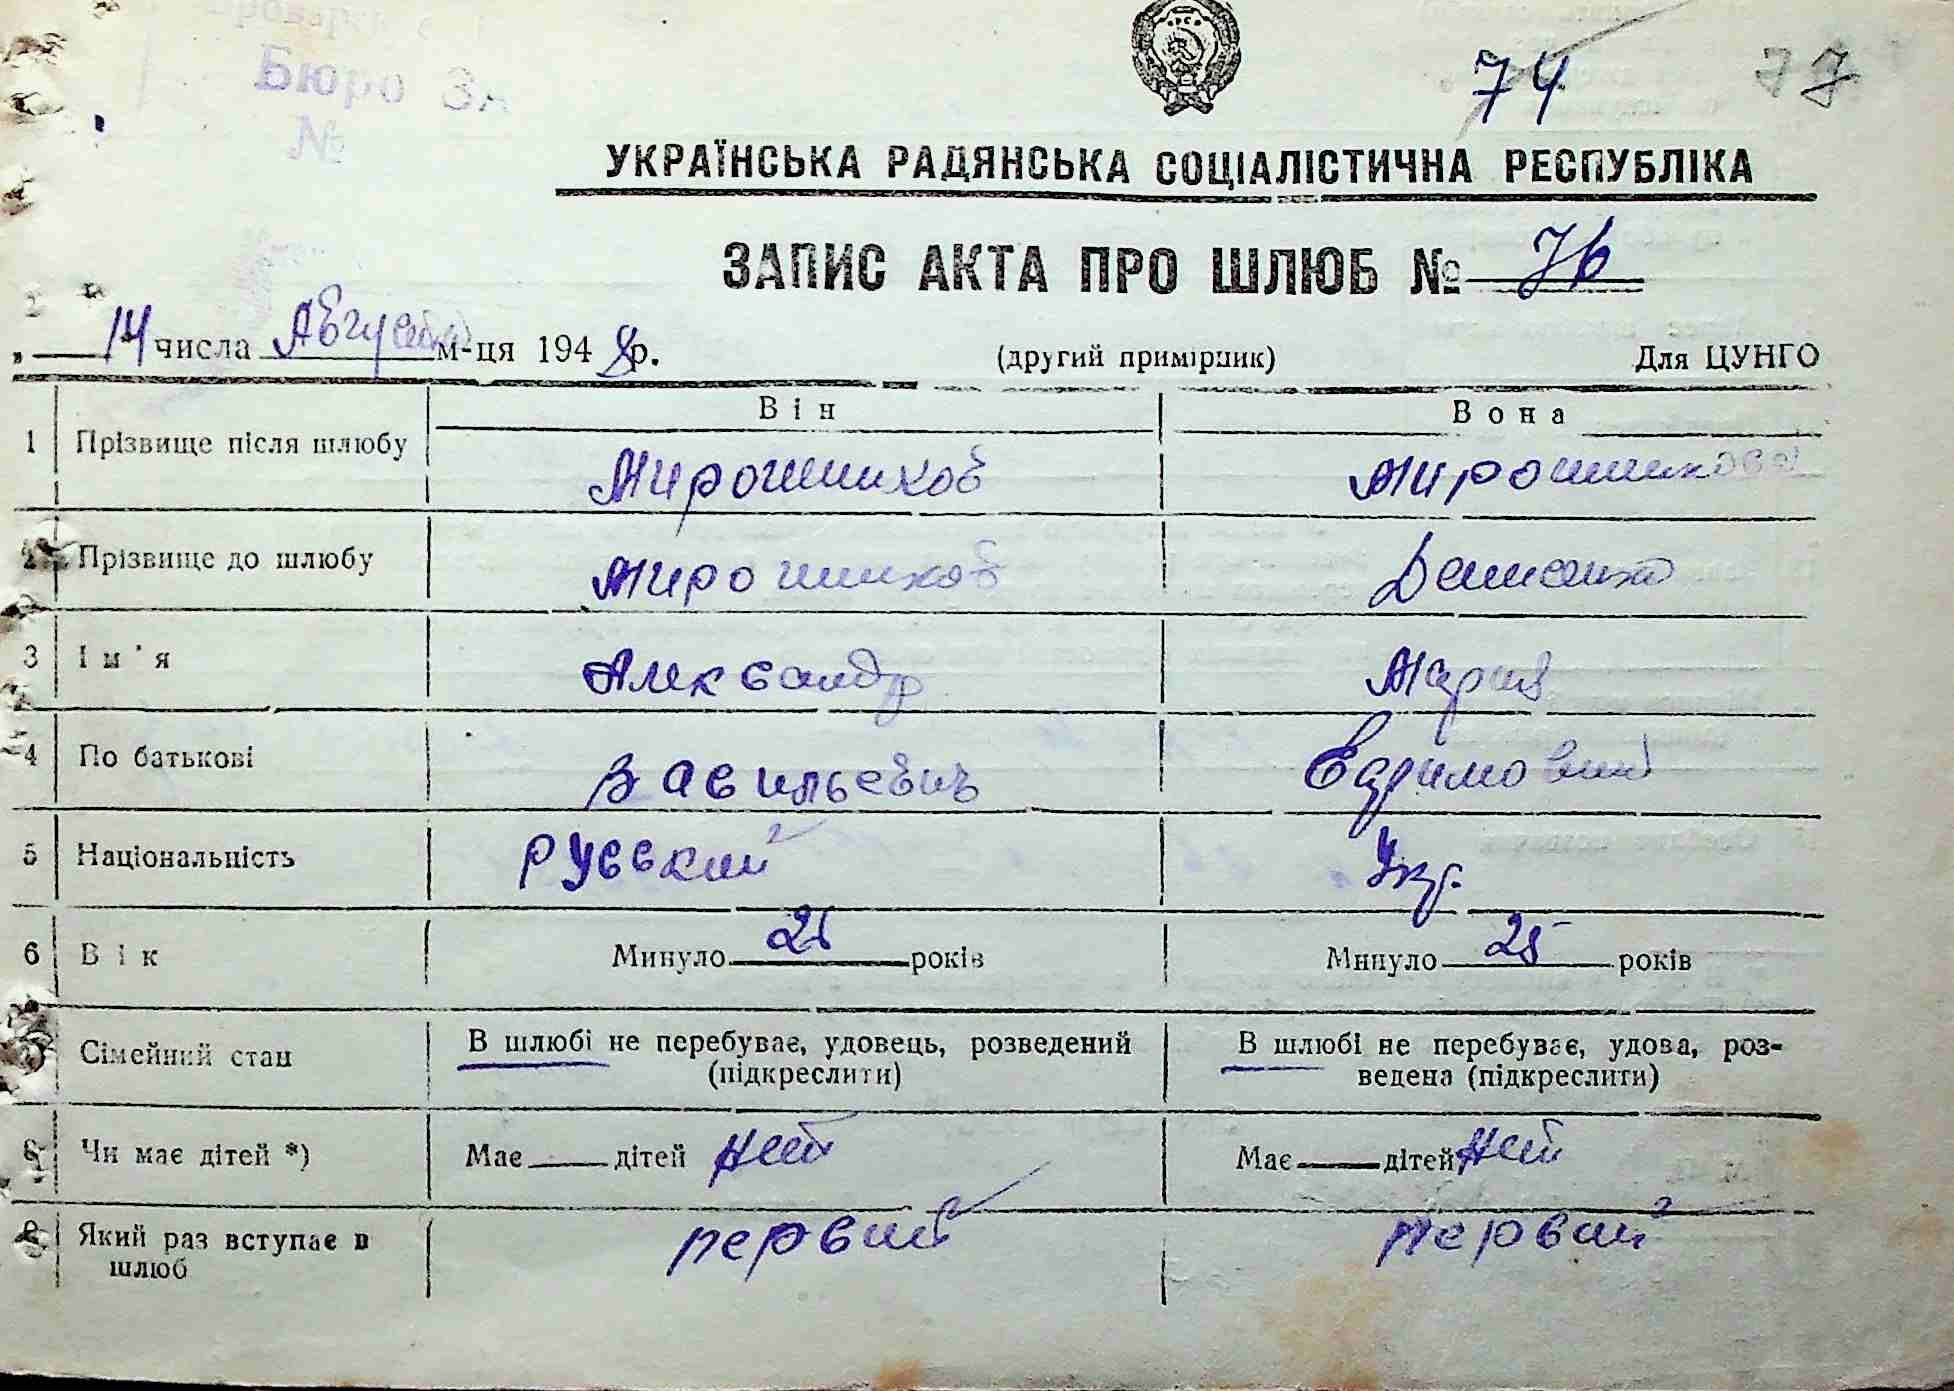 Бюро За
№
74 77
УКРАЇНСЬКА РАДЯНСЬКА СОЦІАЛІСТИЧНА РЕСПУБЛІКА
ЗАПИС АКТА ПРО ШЛЮБ № 76
„ 14 числа Августа м-ця 1948 р. (другий примірник) Для ЦУНГО
Він Вона
1 Прізвище після шлюбу Мирошников Мирошникова
2 Прізвище до шлюбу Мирошников Денисенко
3 Ім'я Александр Мария
4 По батькові Васильевич
5 Національність Русский Укр.
6 Вік Минуло років Минуло 25 років
7 Сімейний стан В шлюбі не перебуває, удовець, розведений (підкреслити) В шлюбі не перебуває, удова, роз-
ведена (підкреслити)
8 Чи має дітей *) Має дітей нет Має дітей нет
9 Який раз вступає в шлюб первый первый